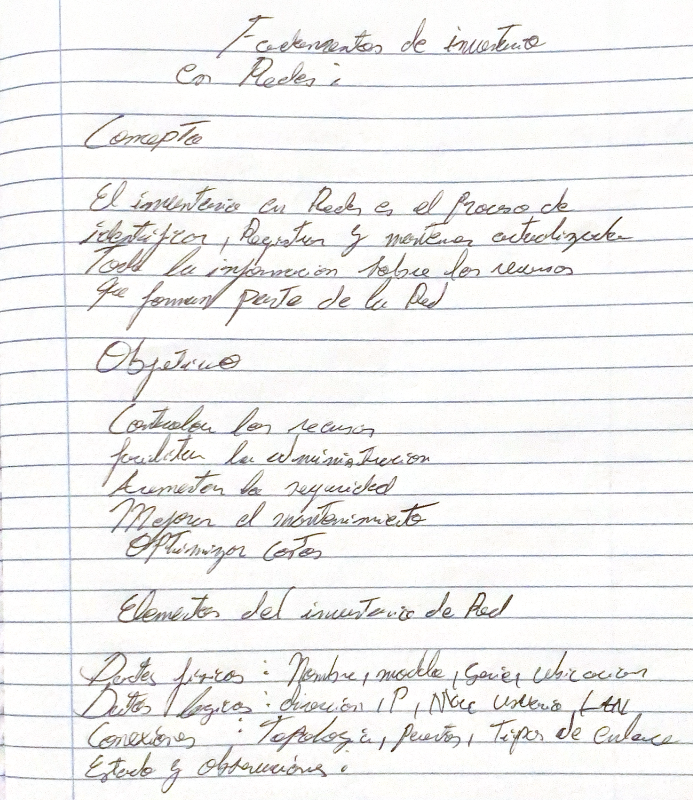 Fundamentos de inventario
en Redes :
Concepto
El inventario en Redes es el proceso de
identificar, Registrar y mantener actualizada
Toda la informacion sobre los recursos
que forman parte de la Red
Objetivo
Controlar los recursos
facilitar la administracion
Aumentar la seguridad
Mejorar el mantenimiento
Optimizar costos
Elementos del inventario de Red
Datos fisicos : Nombre, modelo, serie, ubicacion
Datos logicos : direccion IP, Mac usuario, LAN,
Conexiones : Topologia, puertos, Tipos de enlace
Estado y observaciones :